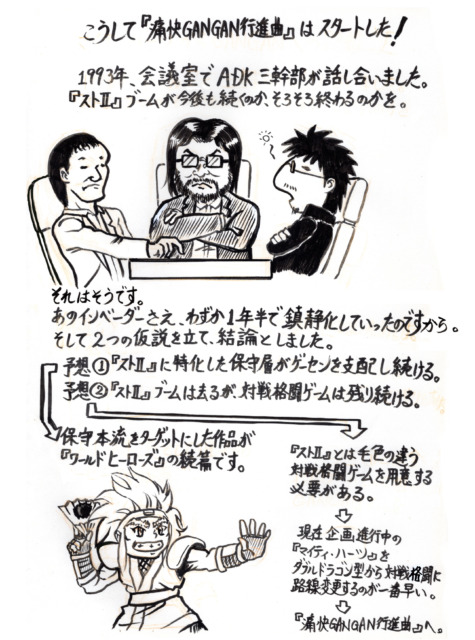 こうして『痛快GANGAN行進曲』はスタートした！
1993年、会議室でADK三幹部が話し合いました。
『ストⅡ』ブームが今後も続くのか、そろそろ終わるのかを。
それはそうです。
あのインベーダーさえ、わずか1年半で鎮静化していったのですから。
そして2つの仮説を立て、結論としました。
予想①『ストⅡ』に特化した保守層がゲーセンを支配し続ける。
予想②『ストⅡ』ブームは去るが、対戦格闘ゲームは残り続ける。
保守本流をターゲットにした作品が
『ワールドヒーローズ』の続篇です。
『ストⅡ』とは毛色の違う
対戦格闘ゲームを用意する
必要がある。
現在企画進行中の
『マイティ・ハーツ』を
ダブルドラゴン型から対戦格闘に
路線変更するのが一番早い。
『痛快GANGAN行進曲』へ。